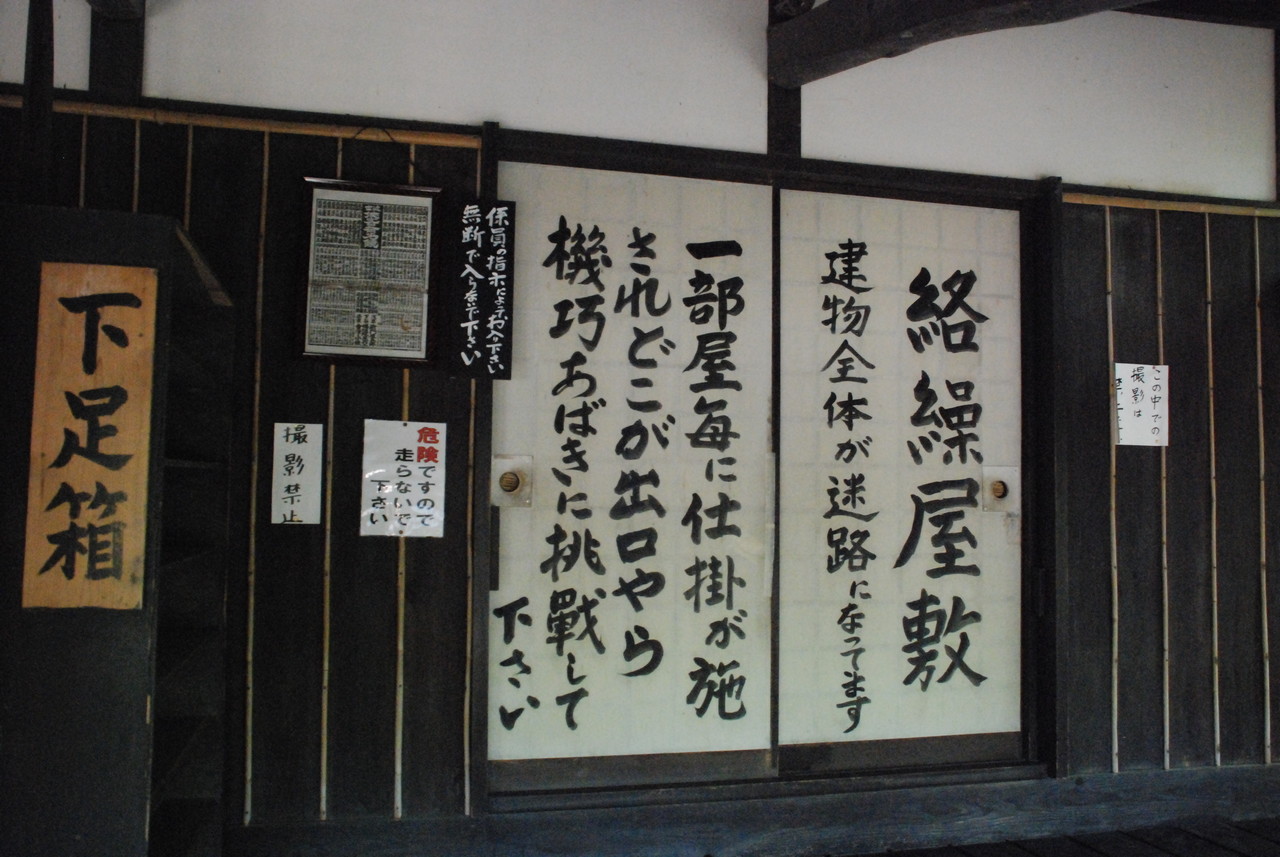 絡繰屋敷
建物全体が迷路になってます
一部屋毎に仕掛が施
されどこが出口やら
機巧あばきに挑戰して
下さい
係員の指示によってお入り下さい
無断で入らないで下さい
危険ですので
走らないで
下さい
撮影禁止
下足箱
この中での
撮影は